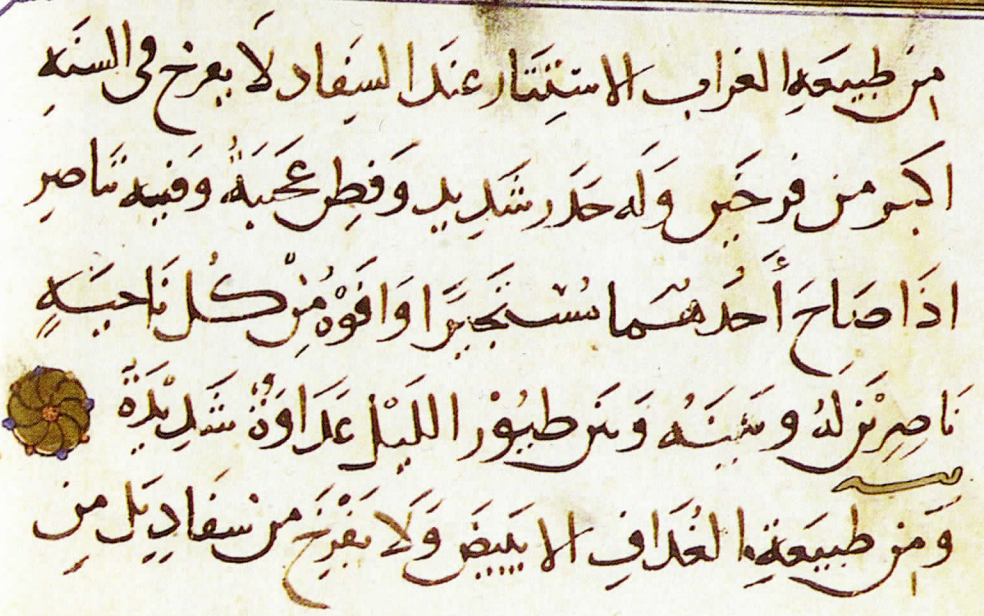 من طبيعة الغراب الاستتار عند السفاد لا يفرخ في السنة
اكبر من فرخين وله حذر شديد وفطن عجيبة وفيه تناصر
اذا صاح أحدهما مستجيرا وافوه من كل ناحية
ناصرين له وبينه وبين طيور الليل عداوة شديدة
ومن طبيعة الغداف الا يبيض ولا يفرخ من سفاد بل من